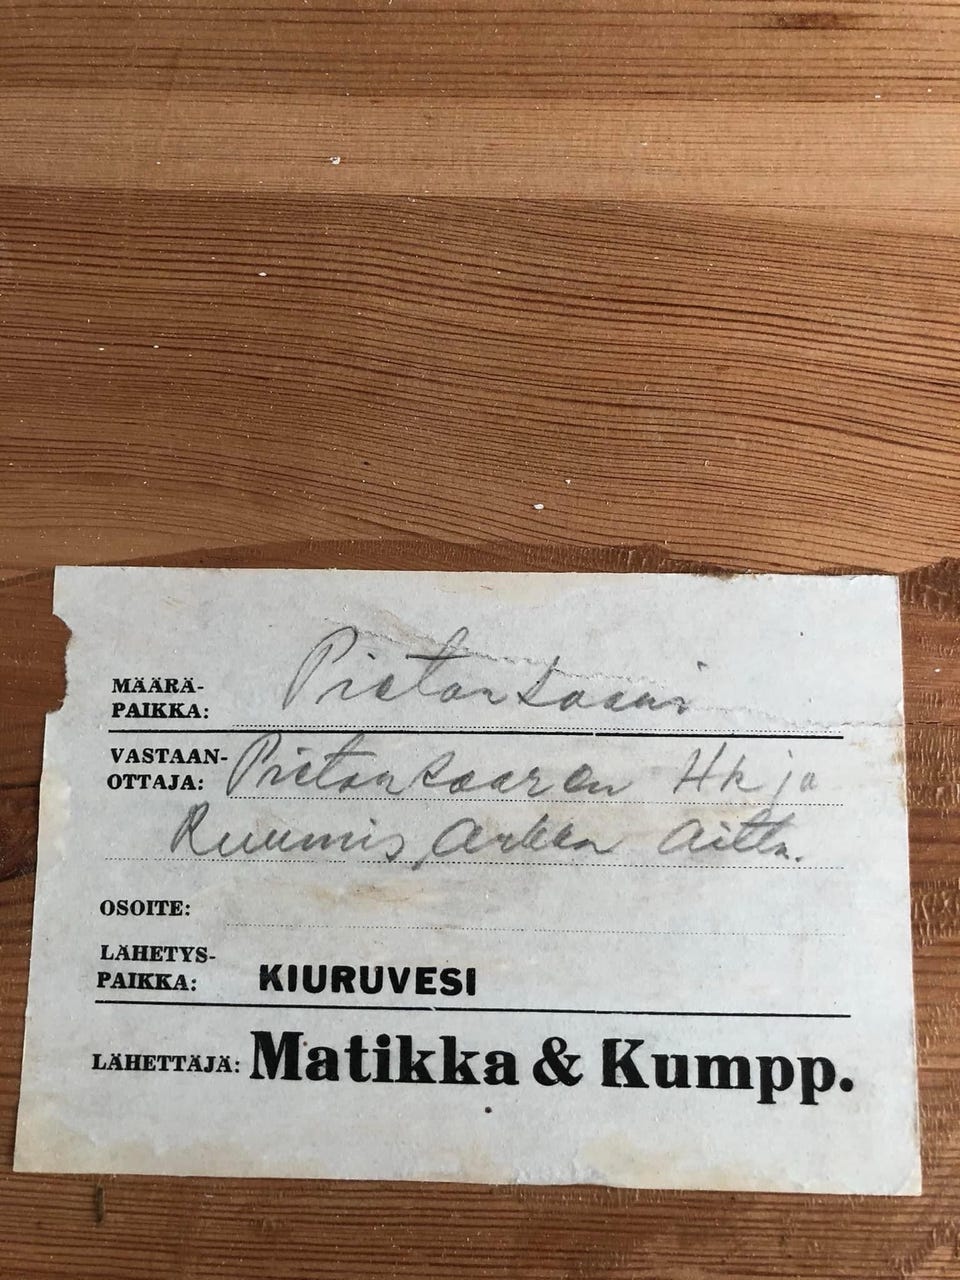 MÄÄRÄ-
PAIKKA: Pietarsaari
VASTAAN-
OTTAJA: Pietarsaaren Hk ja
Ruumis Arkku Aitta.
OSOITE:
LÄHETYS-
PAIKKA: KIURUVESI
LÄHETTÄJÄ: Matikka & Kumpp.